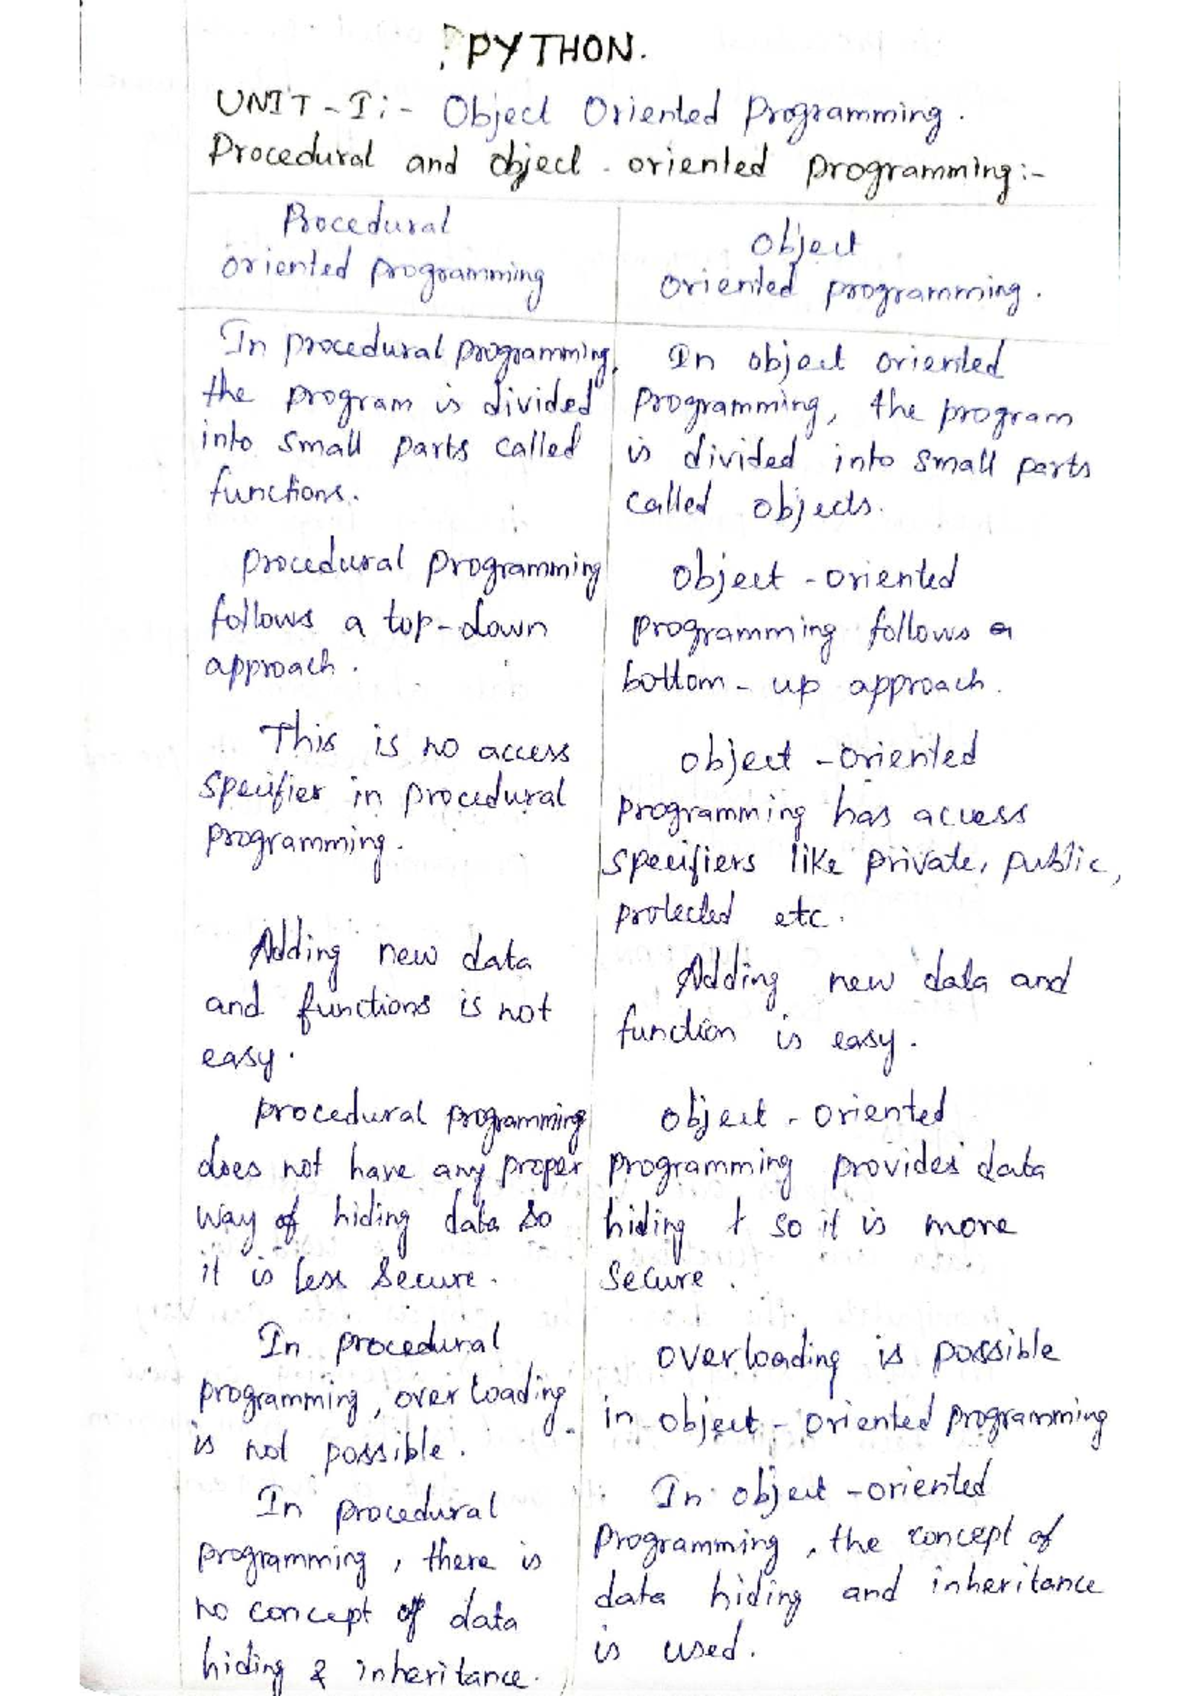 PYTHON.
UNIT-I:- Object Oriented Programming.
Procedural and object-oriented programming:-
Procedural
oriented programming
In procedural programming,
the program is divided
into small parts called
functions.
procedural programming
follows a top-down
approach.
This is no access
specifier in procedural
programming.
Adding new data
and functions is not
easy.
procedural programming
does not have any proper
way of hiding data so
it is less secure.
In procedural
programming, overloading
is not possible.
In procedural
programming, there is
no concept of data
hiding & inheritance.
Object
oriented programming.
In object oriented
programming, the program
is divided into small parts
called objects.
object-oriented
programming follows a
bottom-up approach.
object-oriented
programming has access
specifiers like private, public,
protected etc.
Adding new data and
function is easy.
object-oriented
programming provides data
hiding so it is more
secure.
overloading is possible
in object-oriented programming
In object-oriented
programming, the concept of
data hiding and inheritance
is used.